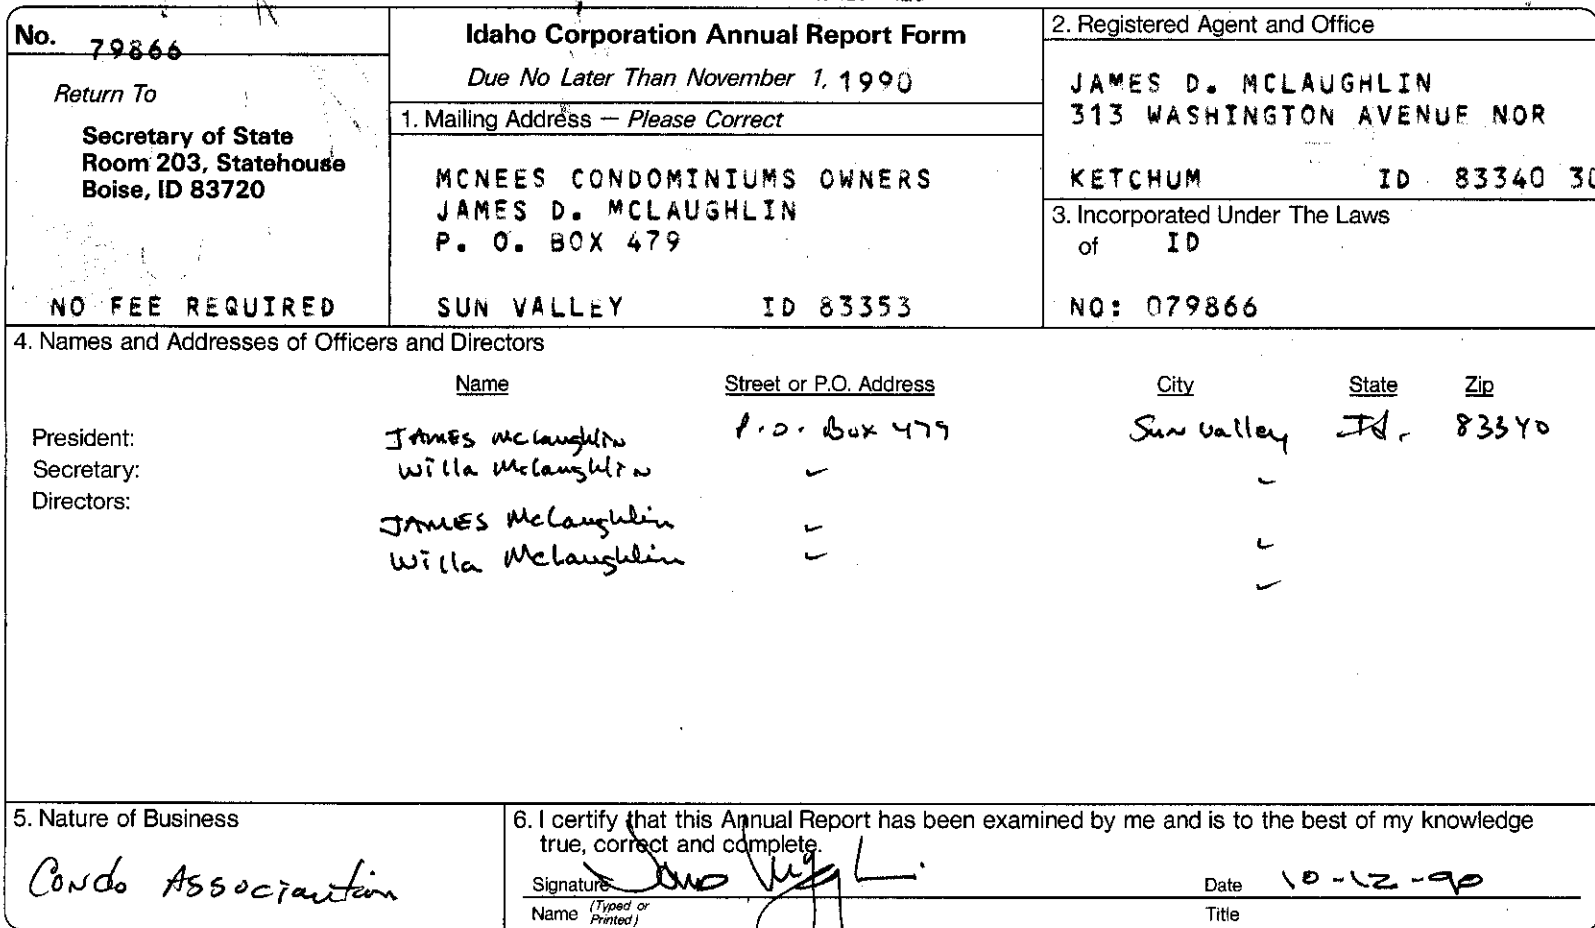 No. 79866
Return To
Secretary of State
Room 203, Statehouse
Boise, ID 83720
NO FEE REQUIRED
Idaho Corporation Annual Report Form
Due No Later Than November 1, 1990
1. Mailing Address — Please Correct
MCNEES CONDOMINIUMS OWNERS
JAMES D. MCLAUGHLIN
P. O. BOX 479
SUN VALLEY ID 83353
2. Registered Agent and Office
JAMES D. MCLAUGHLIN
313 WASHINGTON AVENUE NOR
KETCHUM ID 83340 30
3. Incorporated Under The Laws
of ID
NO: 079866
4. Names and Addresses of Officers and Directors
Name Street or P.O. Address City State Zip
President: JAMES McLaughlin P.O. Box 479 Sun Valley Id. 83340
Secretary: Willa McLaughlin
Directors:
JAMES McLaughlin
Willa McLaughlin
5. Nature of Business
Condo
6. I certify that this Annual Report has been examined by me and is to the best of my knowledge
true, correct and complete.
Signature Date 10-12-90
Name (Typed or Printed) Title